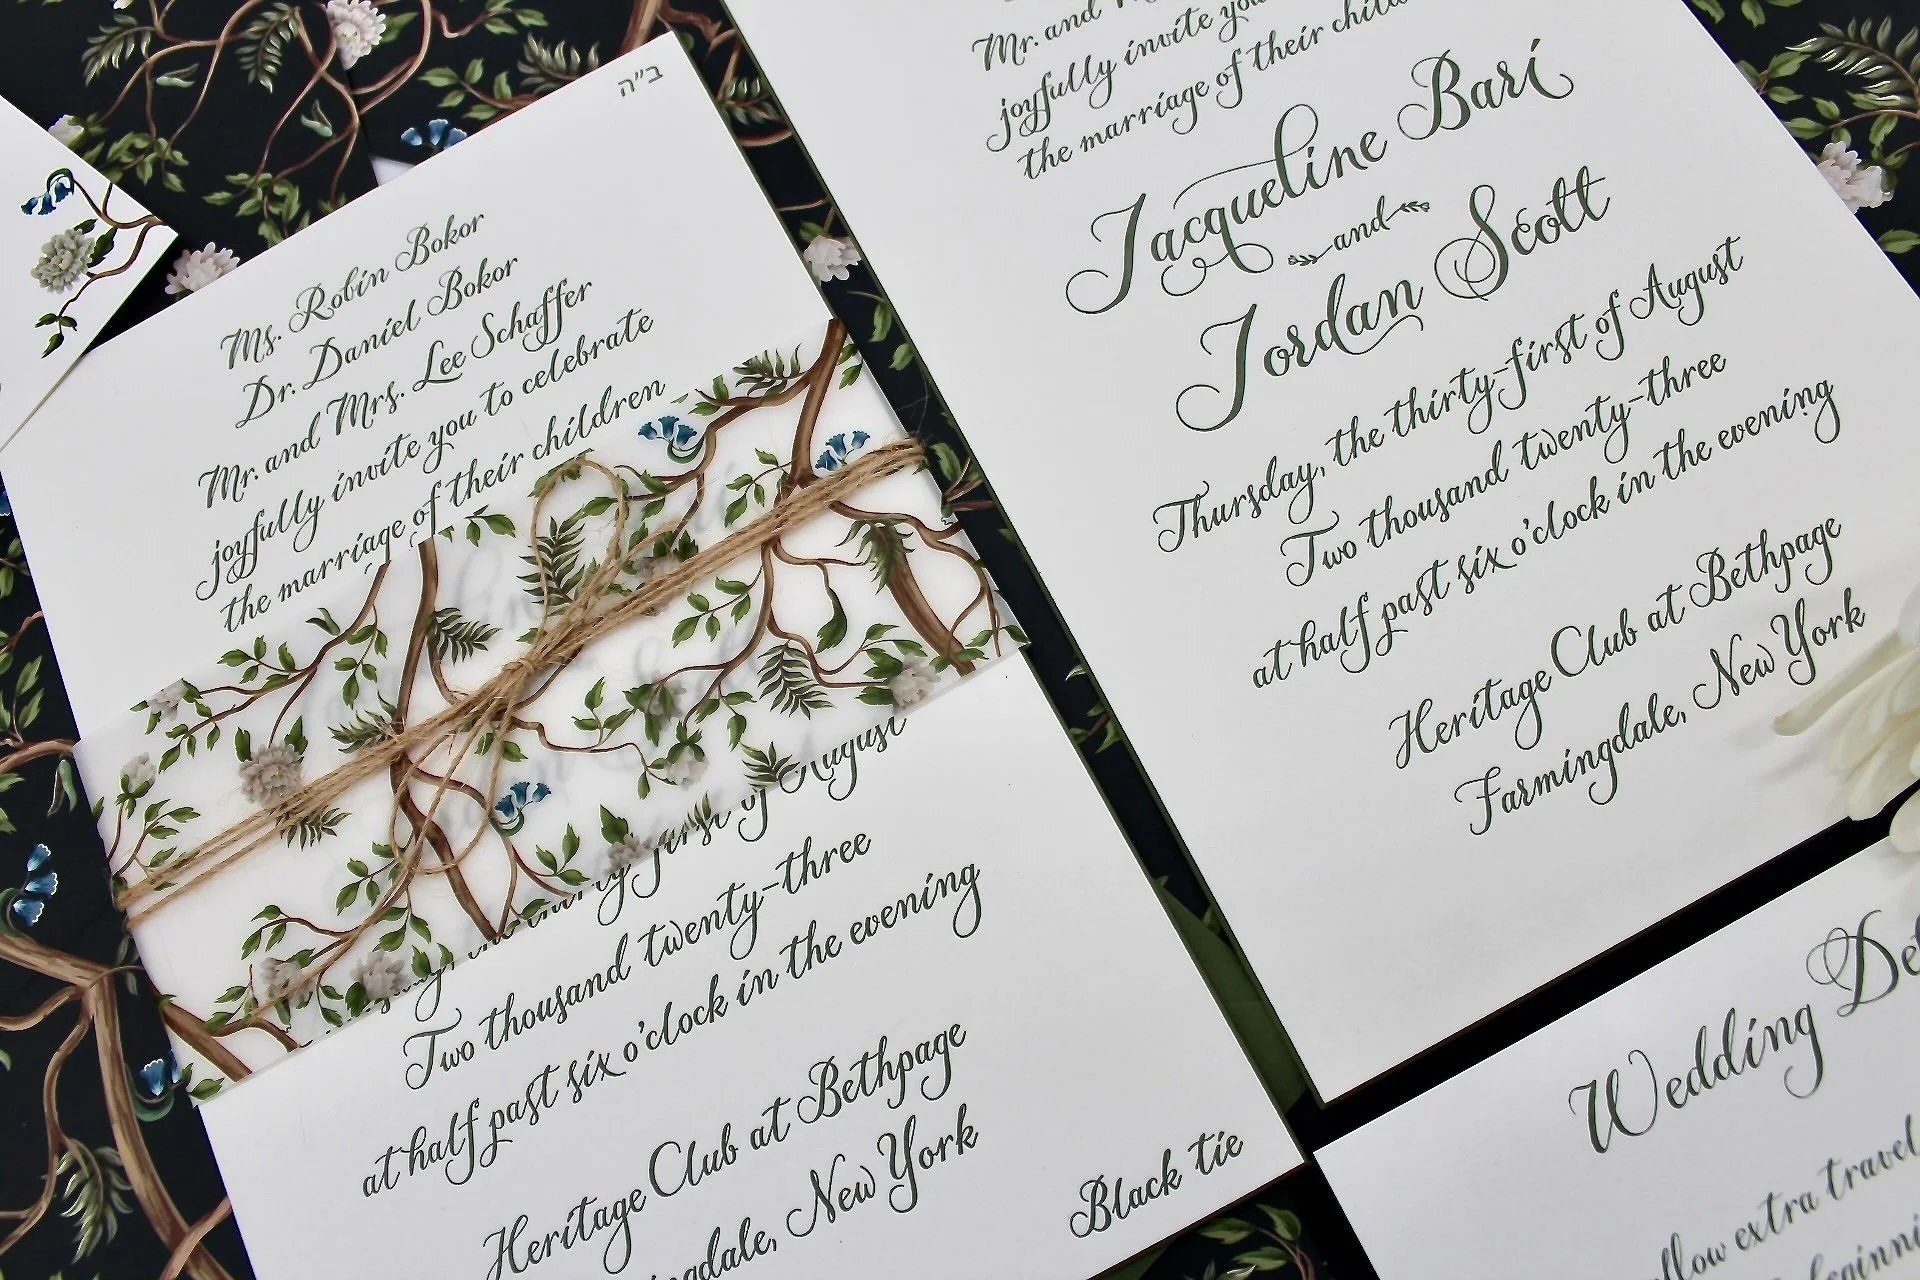 ב"ה
Ms. Robin Bokor
Dr. Daniel Bokor
Mr. and Mrs. Lee Schaffer
joyfully invite you to celebrate
the marriage of their children
first of August
Two thousand twenty-three
at half past six o'clock in the evening
Heritage Club at Bethpage
New York
Black tie
Mr. and
joyfully invite you
the marriage of their
Jacqueline Bari
and
Jordan Scott
Thursday, the thirty-first of August
Two thousand twenty-three
at half past six o'clock in the evening
Heritage Club at Bethpage
Farmingdale, New York
Wedding
extra travel